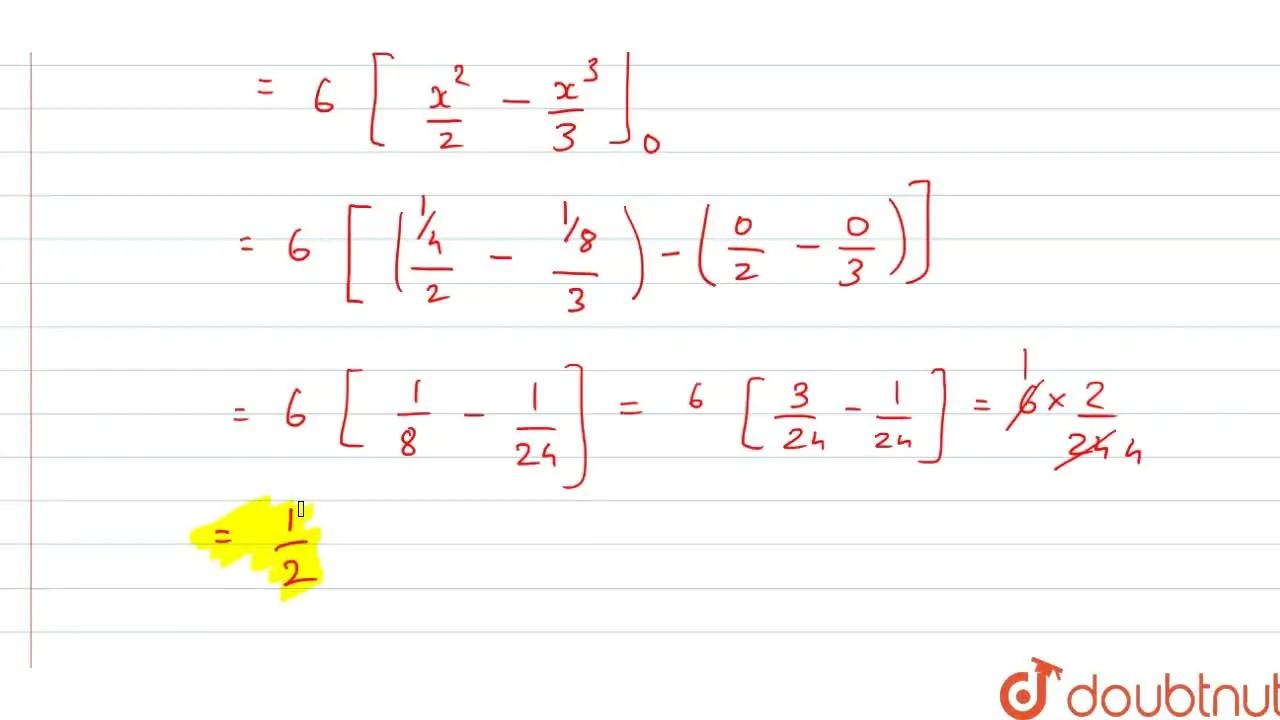 = 6 [ x²/2 - x³/3 ]₀
= 6 [ ( 1/4/2 - 1/8/3 ) - ( 0/2 - 0/3 ) ]
= 6 [ 1/8 - 1/24 ] = 6 [ 3/24 - 1/24 ] = 6 1 × 2/24 4
= 1/2
doubtnut